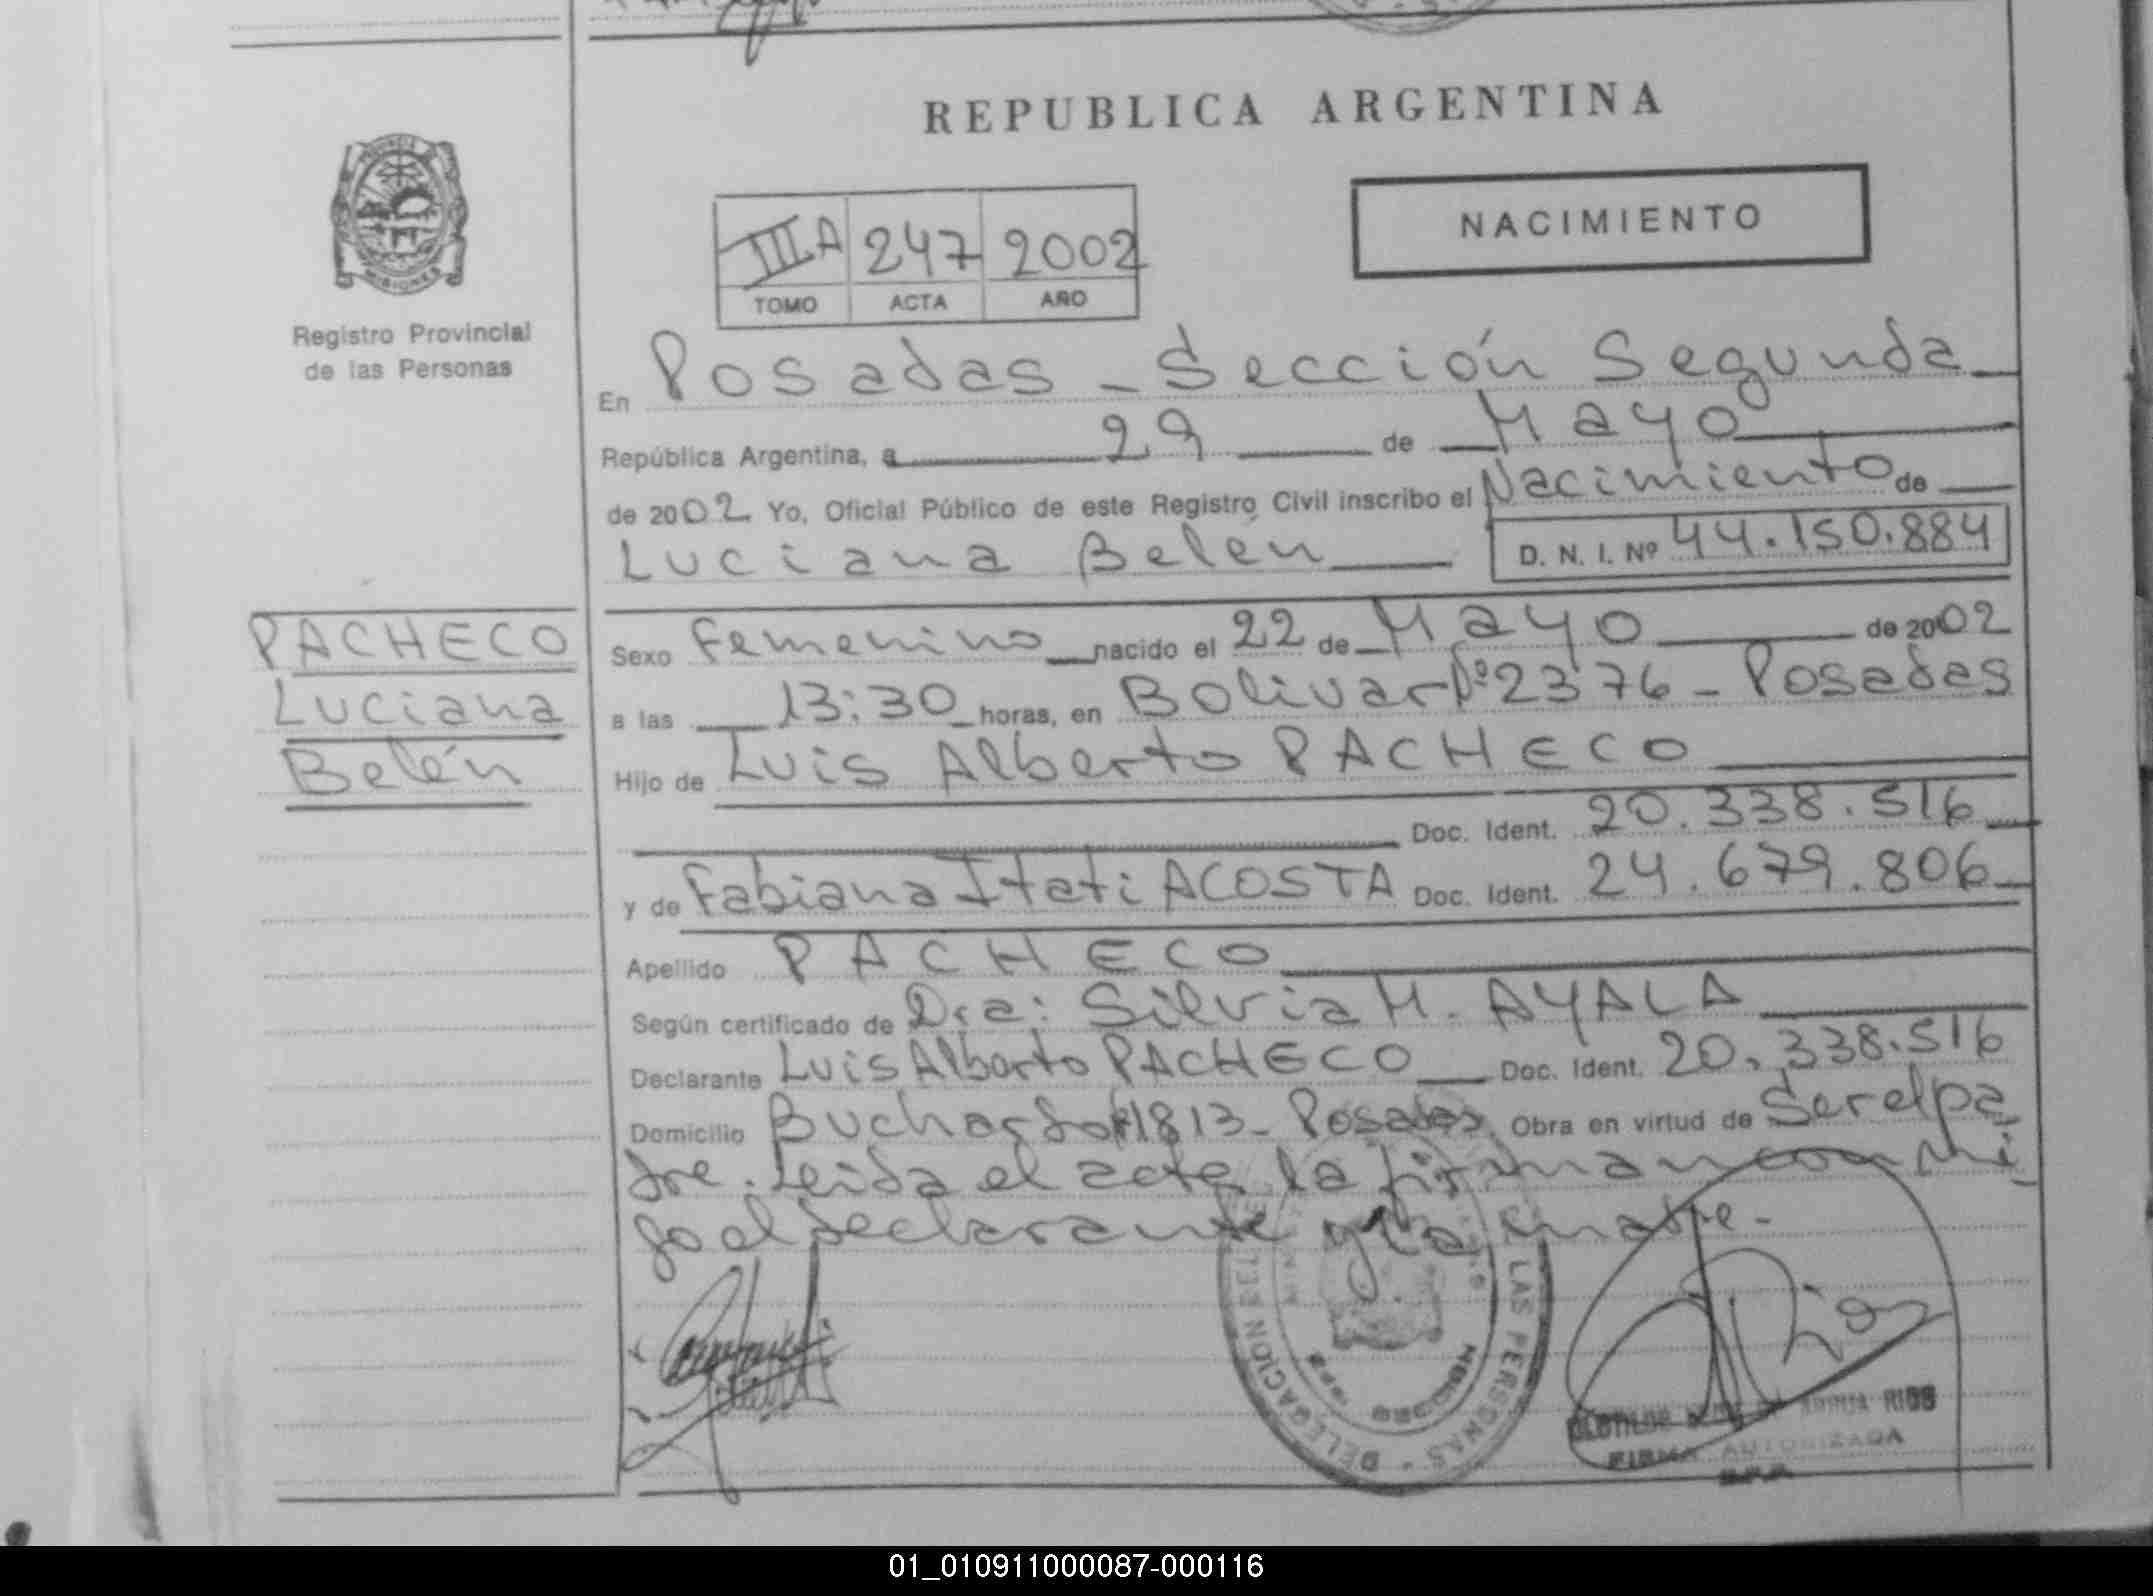 REPUBLICA ARGENTINA
NACIMIENTO
III A 247 2002
TOMO ACTA AÑO
Registro Provincial
de las Personas
En Posadas - Sección Segunda
República Argentina, a 29 de Mayo
de 2002 Yo, Oficial Público de este Registro Civil inscribo el Nacimiento de
Luciana Belén D. N. I. Nº 44.150.884
PACHECO
Luciana
Belén
Sexo Femenino nacido el 22 de Mayo de 2002
a las 13:30 horas, en Bolivar Nº 2376 - Posadas
Hijo de Luis Alberto PACHECO
Doc. Ident. 20.338.516
y de Fabiana Itati ACOSTA Doc. Ident. 24.679.806
Apellido PACHECO
Según certificado de Dra: Silvia M. AYALA
Declarante Luis Alberto PACHECO Doc. Ident. 20.338.516
Domicilio 1813 - Posadas Obra en virtud de Ser el pa
dre. Leida el acta la firman con mi
go el declarante y la madre.
DELEGACION
LAS PERSONAS
RIOS
FIRMA AUTORIZADA
01_010911000087-000116